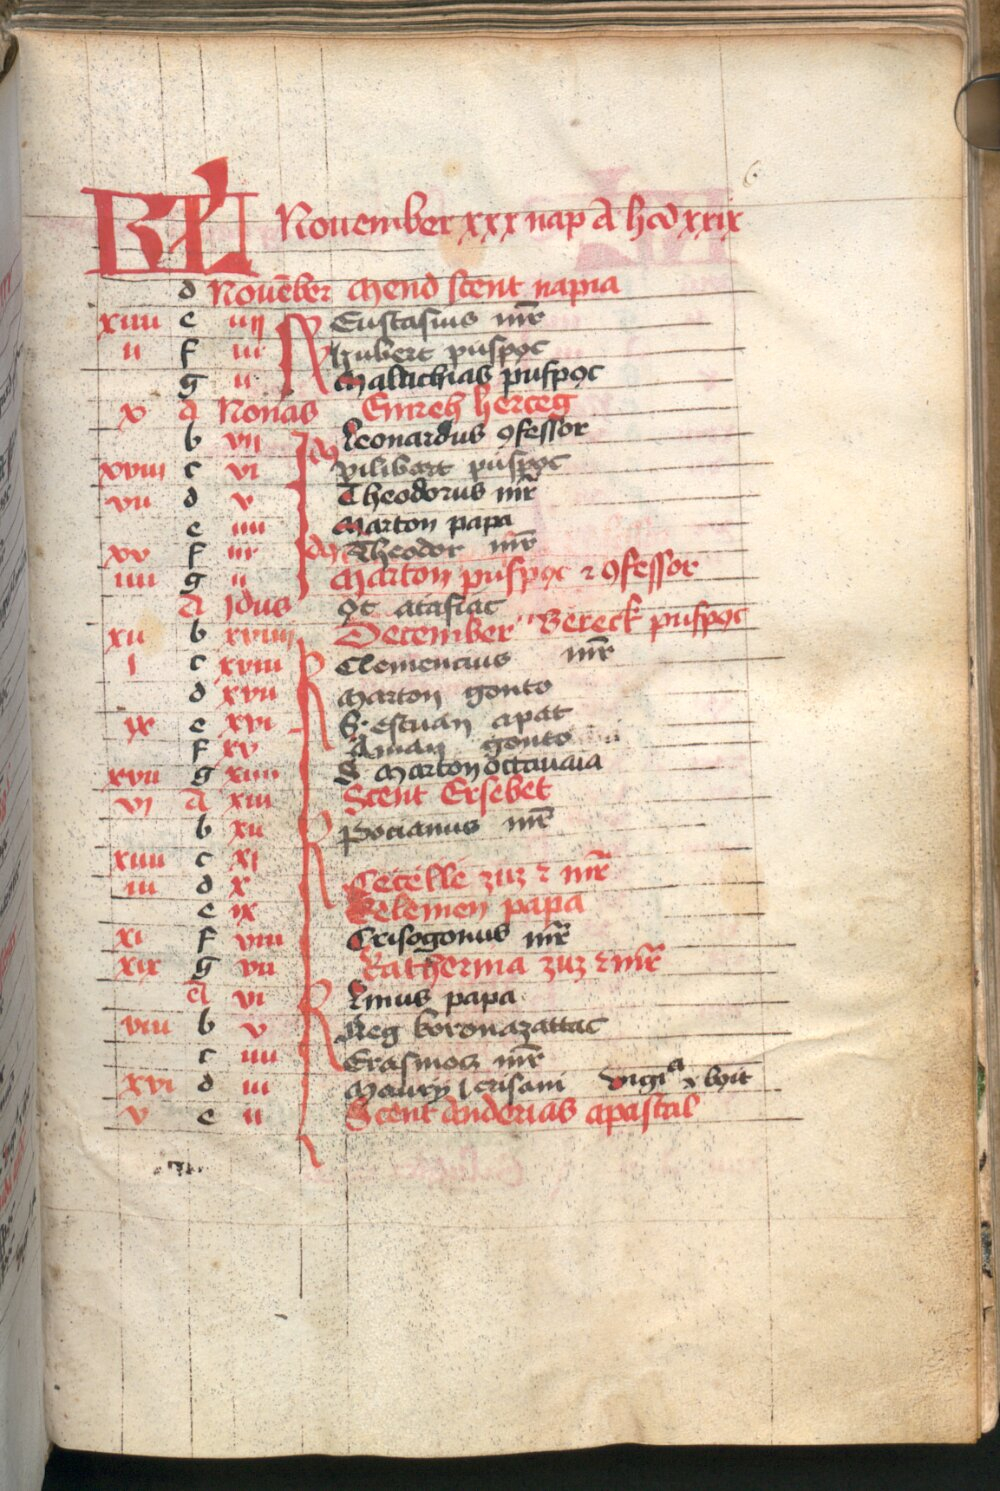 KL November xxx nap A hod xxix
d Novēber Mend scent napia
xiiii e iiij Eustasius mr̄
ii f iii Hubert puspoc
g ii Malachias puspoc
x A Nonas Emreh herceg
b vii Leonardus ɔfessor
xviii c vi Vilibart puspoc
vii d v Theodorus mr̄
e iiii Marton papa
xv f iii Theodor mr̄
iiii g ii Marton puspoc ⁊ ɔfessor
A Jdus
xii b xviiii December Bereck puspoc
i c xviii Clemencius mr̄
d xvii Marton gonto
ix e xvi S. estuan apat
f xv Aman gonto
xvii g xiiii S Marton octavaia
vi A xiii Scent Ersebet
b xii Pocianus mr̄
xiiii c xi
iii d x Cecelle zuz ⁊ mr̄
e ix Kelemen papa
xi f viii Crisogonus mr̄
xix g vii Katherina zuz ⁊ mr̄
A vi Linus papa
viii b v Meg koronazattac
c iiii Erasmos mr̄
xvi d iii vigia
v e ii Scent Anderias apastal